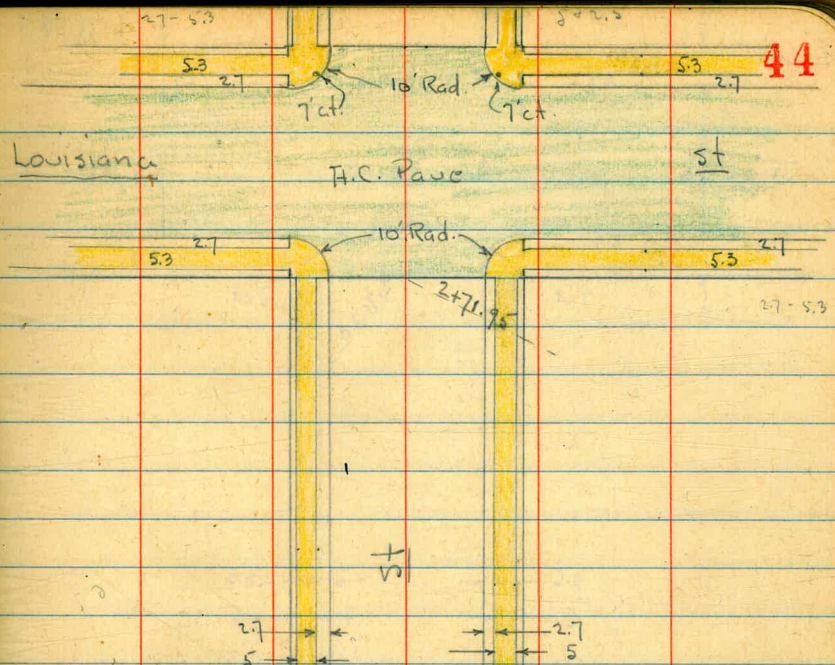 2.7 - 5.3
5 + 2.5
44
5.3
2.7
10' Rad.
5.3
2.7
7' ct.
7' ct.
Louisiana
A.C. Pave
St
2.7
5.3
10' Rad.
2.7
5.3
2+71.95
2.7 - 5.3
St
2.7
2.7
5
5